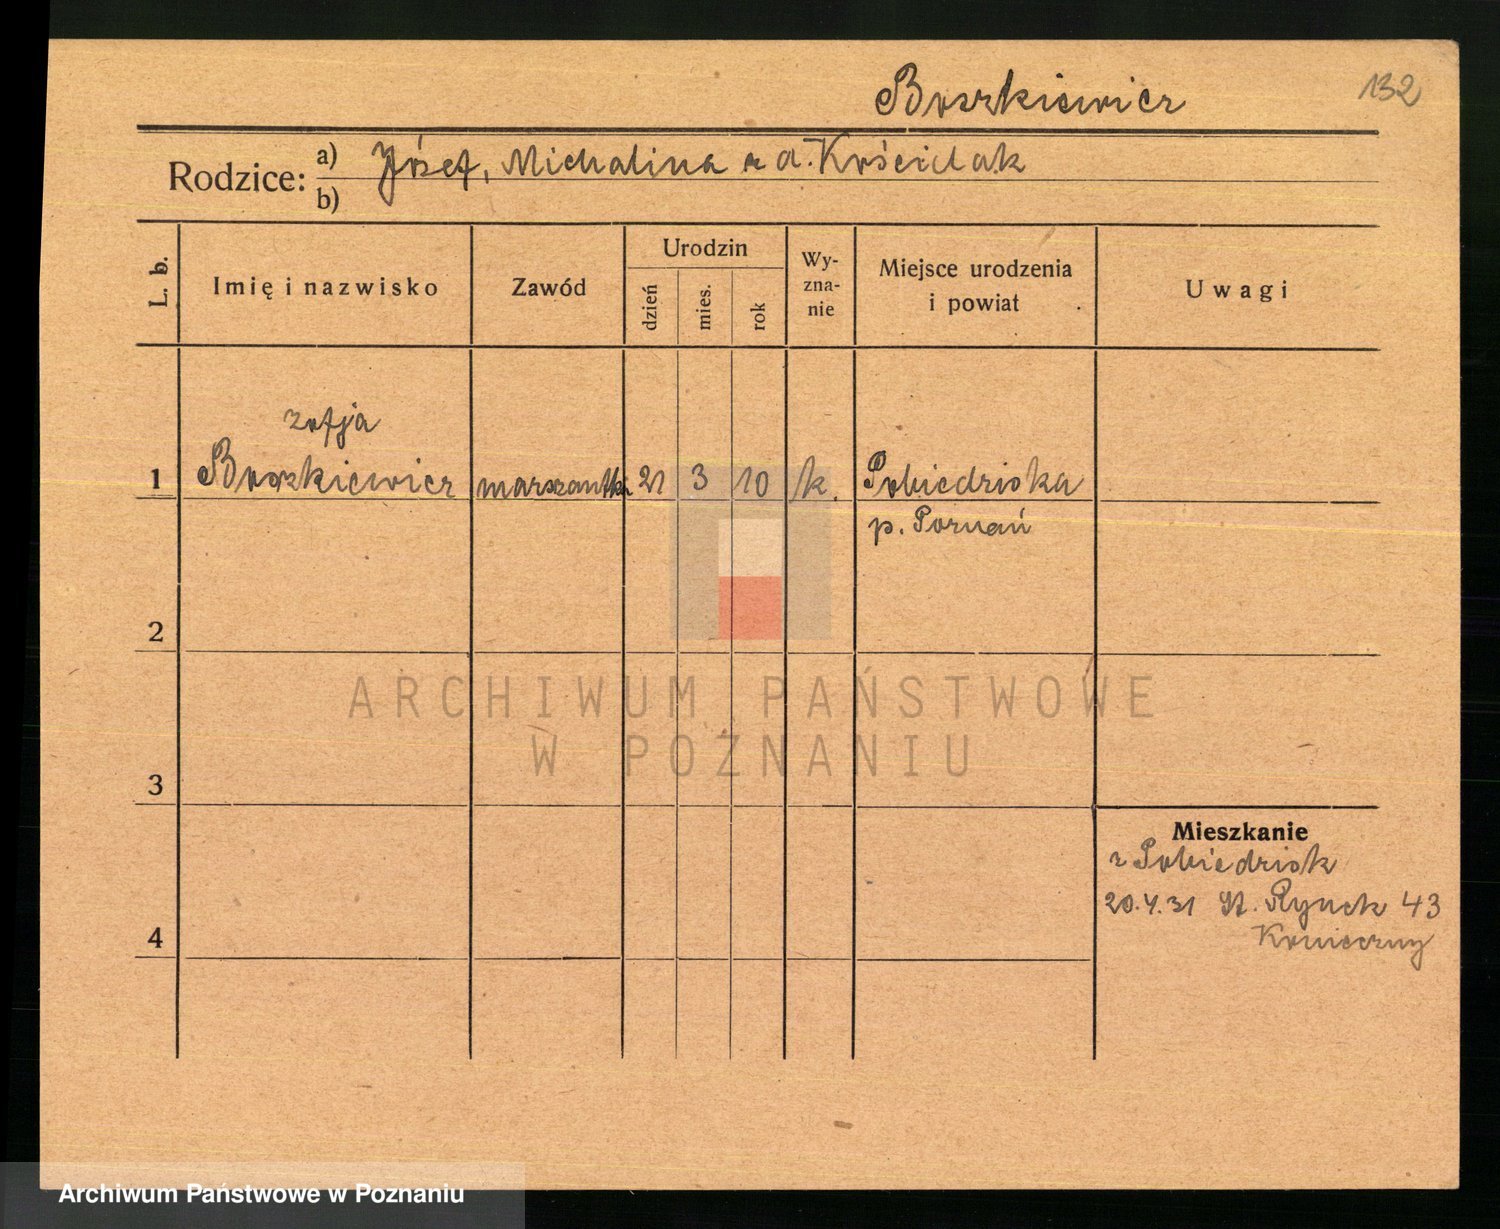 Boszkiewicz
132
Rodzice: a) Józef, Michalina z d. Kościelak
b)
L. b.
Imię i nazwisko
Zawód
Urodzin
dzień
mies.
rok
Wy-
zna-
nie
Miejsce urodzenia
i powiat
Uwagi
Zofja
1 Boszkiewicz marszantka 21 3 10 k. Pobiedziska
p. Poznań
2
3
4
Mieszkanie
z Pobiedzisk
20.4.31 St. Rynek 43
Konieczny
ARCHIWUM PAŃSTWOWE
W POZNANIU
Archiwum Państwowe w Poznaniu